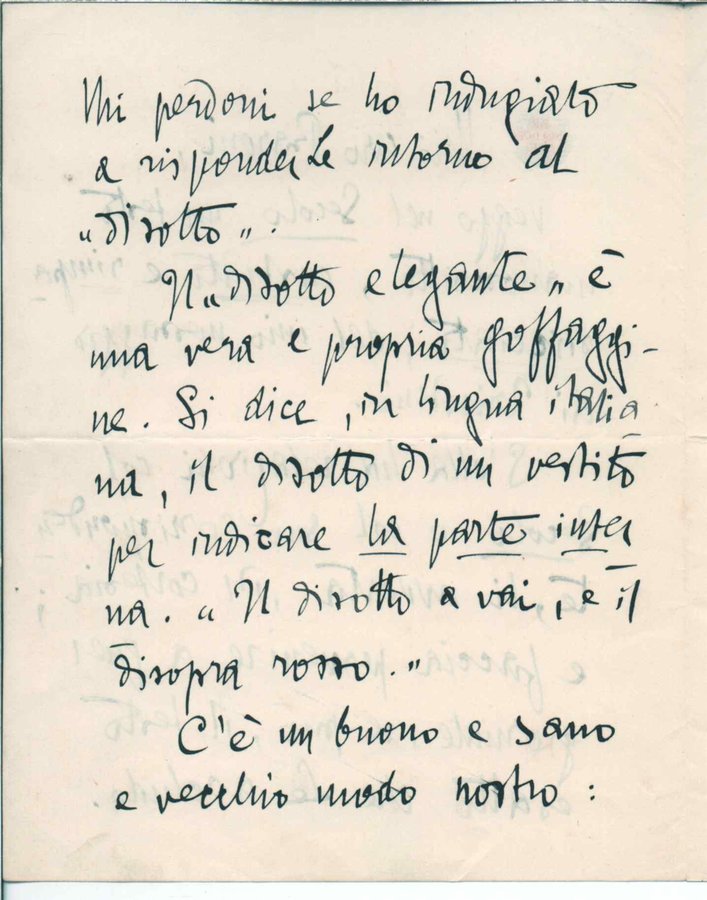 Mi perdoni se ho indugiato
a risponderLe intorno al
"disotto".
Il "disotto elegante" è
una vera e propria goffaggi-
ne. Si dice, in lingua italia
na, il disotto di un vestito
per indicare la parte inter
na. "Il disotto a vai, e il
disopra rosso."
C'è un buono e sano
e vecchio modo nostro: